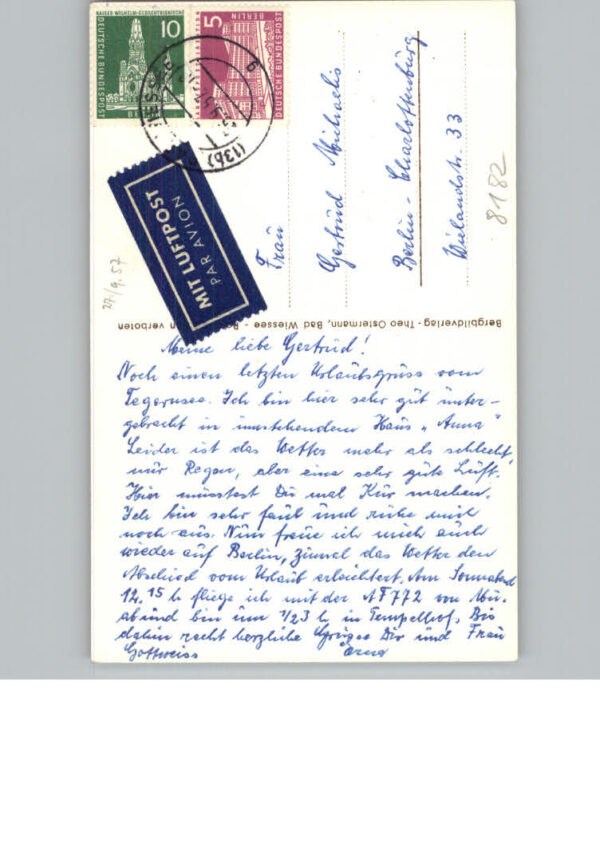 KAISER-WILHELM-GEDÄCHTNISKIRCHE
DEUTSCHE BUNDESPOST
10
BERLIN
5
BERLIN
DEUTSCHE BUNDESPOST
(13b)
MIT LUFTPOST
PAR AVION
27/9.57
Frau
Gertrud Michaelis
Berlin-Charlottenburg
Wielandstr. 33
8182
Bergbildverlag - Theo Ostermann, Bad Wiessee - verboten
Meine liebe Gertrud!
Noch einen letzten Urlaubsgruss vom
Tegernsee. Ich bin hier sehr gut unter-
gebracht in umstehendem Haus „Anna"
Leider ist das Wetter mehr als schlecht,
nur Regen, aber eine sehr gute Luft.
Hier müsstest Du mal Kur machen.
Ich bin sehr faul und ruhe mich
noch aus. Nun freue ich mich auch
wieder auf Berlin, zumal das Wetter den
Abschied vom Urlaub erleichtert. Am Sonnabend
12.15 h fliege ich mit der AF 772 von Mü.
ab und bin um 1/23 h in Tempelhof. Bis
dahin recht herzliche Grüsse Dir und Frau
Gottweiss Erna